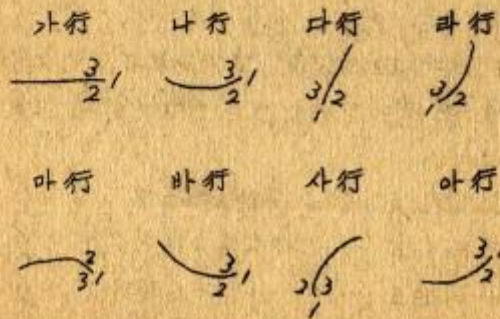 가行 나行 다行 라行
3 1 2 3 1 2 3 2 1 3 2 1
마行 바行 사行 아行
2 3 1 3 2 1 2 3 1 3 2